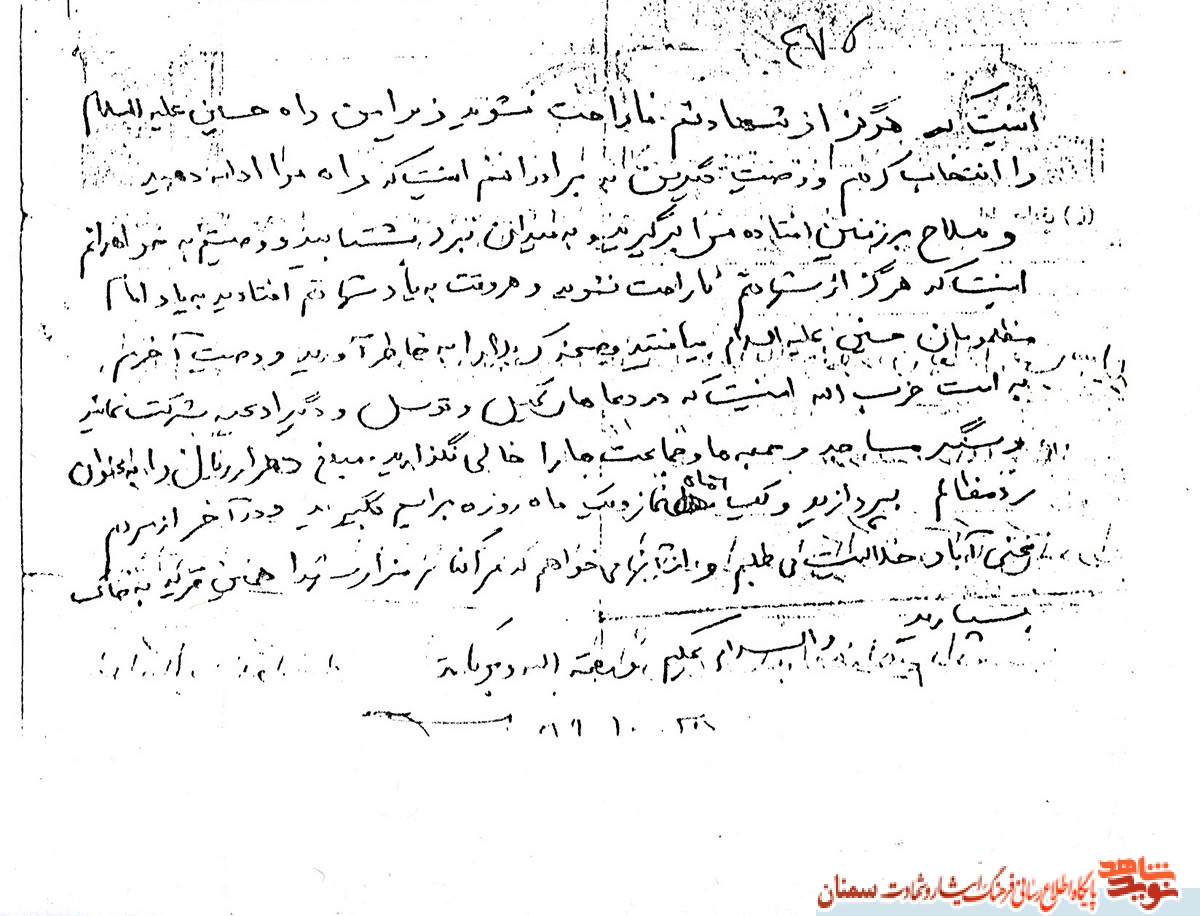 ۴۷۵
اینست که هرگز از شهادتم ناراحت نشوید زیرا من راه حسین علیه السلام
را انتخاب کردم و وصیت دیگرمن به برادرانم اینست که راه مرا ادامه دهید
و سلاح برزمین افتاده مرا برگیرید و به میدان نبرد بشتابید و وصیتم به خواهرانم
اینست که هرگز از شهادتم ناراحت نشوید و هروقت به یاد شهادتم افتادید به یاد امام
مظلومان حسین علیه السلام بیافتید و صحنه کربلا را به خاطر آورید و وصیت آخرم
به امت حزب الله اینست که در دعاهای کمیل و توسل و دیگر ادعیه شرکت نمایند
و سنگر مساجد و جمعه ها و جماعت ها را خالی نگذارید. مبلغ دهزار ریال را به عنوان
رد مظالم بپردازید و یکسال نماز و یک ماه روزه برایم بگیرید و در آخر از مردم
آباد حلالیت می طلبم و از آنها می خواهم که مرا کنار مزار شهدا همین قریه به خاک
بسپارید
والسلام علیکم و رحمة الله و برکاته
نوید شاهد
پایگاه اطلاع رسانی فرهنگ ایثار و شهادت سمنان